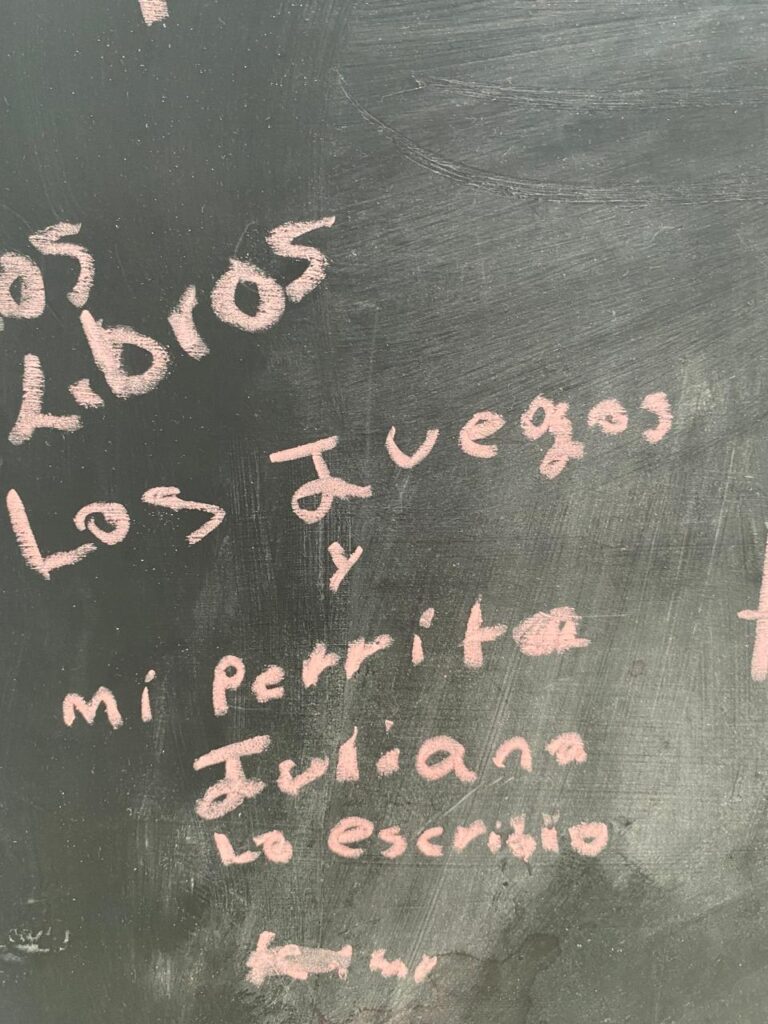 os
Libros
Los Juegos
y
mi perrita
Juliana
Lo escribio